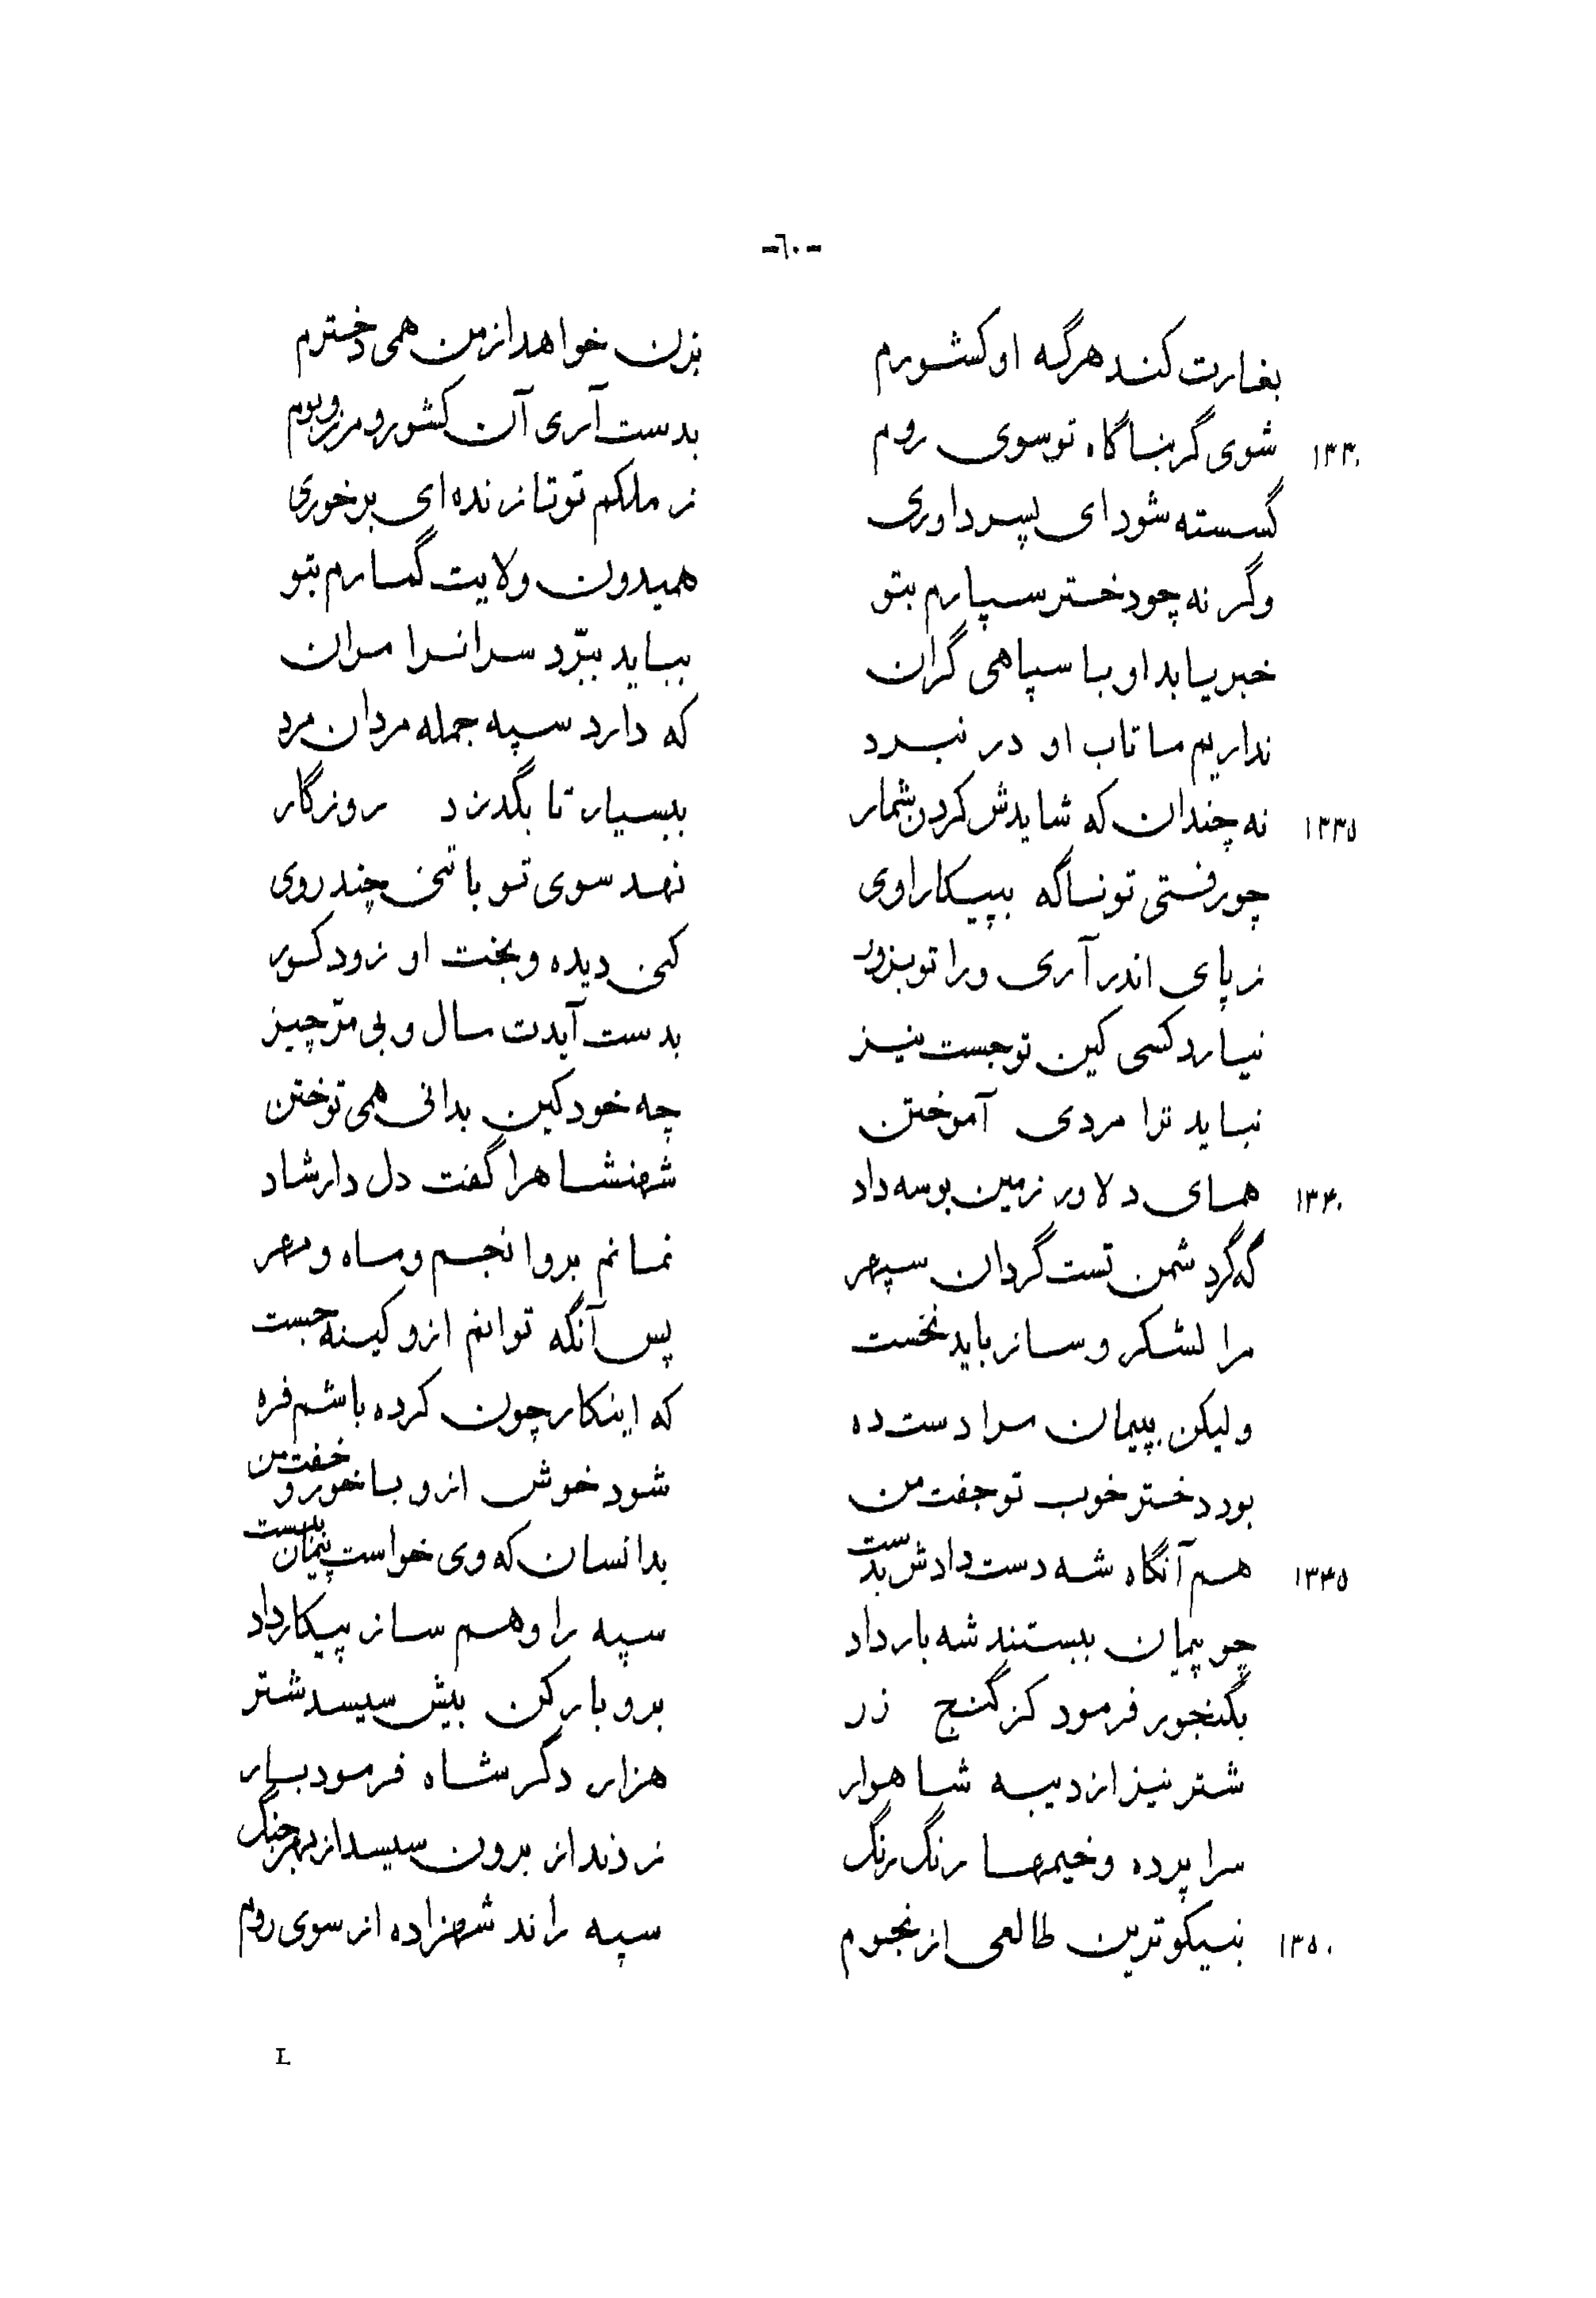 -٦٠-
بغارت کند هرگه او کشورم بزن خواهد از من همی دخترم
١٣٣٠ شوی گر بناگاه تو سوی روم بدست آری آن کشور و مرز و بوم
گسسته شود ای پسر داوری ز ملکم تو تا زنده ای برخوری
وگر نه چو دختر سپارم بتو همیدون ولایت گمارم بتو
خبر یابد او با سپاهی گران بیاید ببرّد سرانرا سران
نداریم ما تاب او در نبرد که دارد سپه جمله مردان مرد
١٣٣٥ نه چندان که شایدش کردن شمار ببسیار تا بگذرد روزگار
چو رفتی تو ناگه بپیکار اوی نهد سوی تو با تنی چند روی
ز پای اندر آری ورا تو بزور کنی دیده و بخت او زود کور
نیارد کسی کین تو جست نیز بدست آیدت مال و بی مرّ چیز
نباید ترا مردی آموختن چه خود کین بدانی همی توختن
١٣٤٠ همای دلاور زمین بوسه داد شهنشاهرا گفت دل دار شاد
که گر دشمن تست گردان سپهر نمانم برو انجم و ماه و مهر
مرا لشکر و ساز باید نخست پس آنگه توانم ازو کینه جست
ولیکن بپیمان مرا دست ده که اینکار چون کرده باشم فره
بود دختر خوب تو جفت من شود خوش ازو با خور و خفت من
١٣٤٥ هم آنگاه شه دست دادش بدست بدانسان که وی خواست پیمان ببست
چو پیمان ببستند شه بار داد سپه را و هم ساز پیکار داد
بگنجور فرمود کز گنج زر برو بار کن بیش سیسد شتر
شتر نیز از دیبه شاهوار هزار دگر شاه فرمود بار
سرا پرده و خیمها رنگ رنگ زدند از برون سیسد از بهر جنگ
١٣٥٠ بنیکوترین طالعی از نجوم سپه راند شهزاده از سوی روم
L